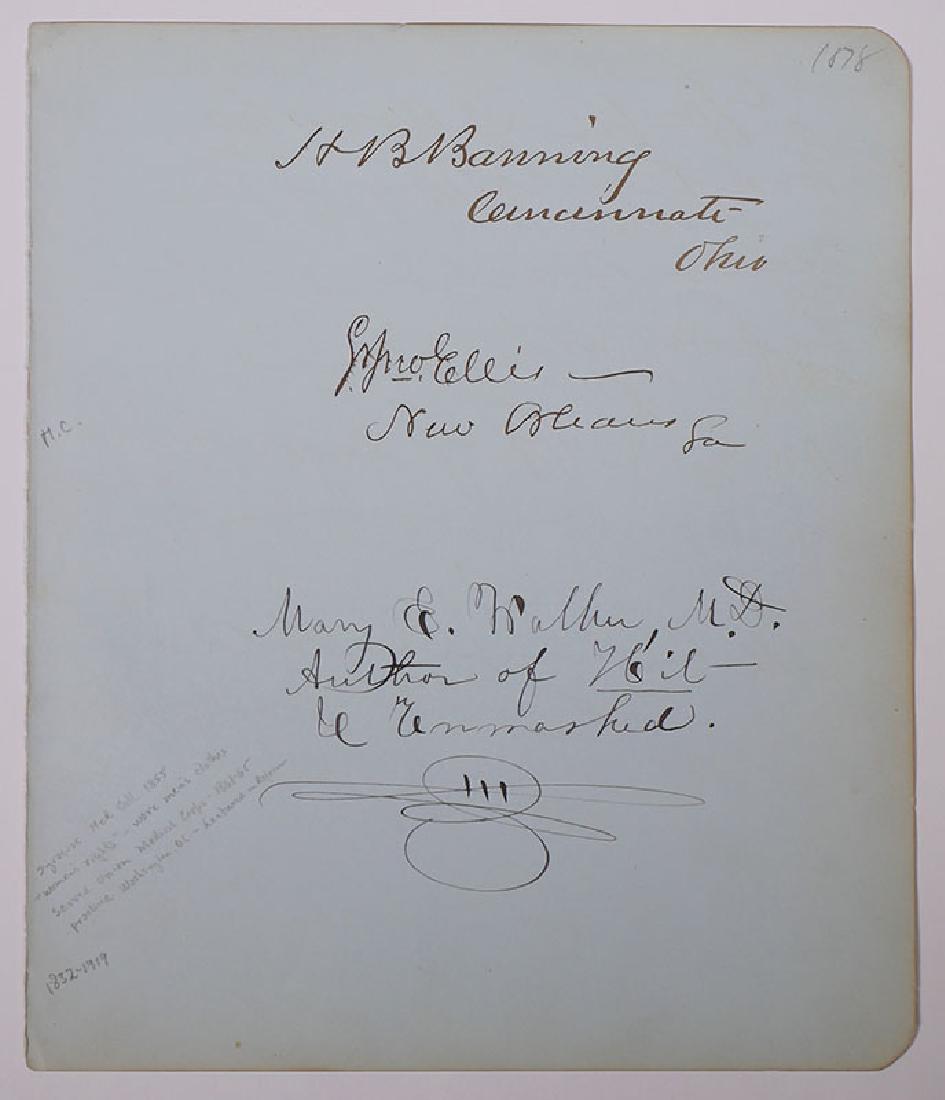 1878
H B Banning
Cincinnati
Ohio
E. Jno. Ellis —
New Orleans La
M.C.
Mary E. Walker, M.D.
Author of "Hit"
& Unmasked.
Syracuse Med Coll. 1855
women's rights - wore men's clothes
Served Union Medical Corps 1861-65
practice Washington DC -
1832-1919